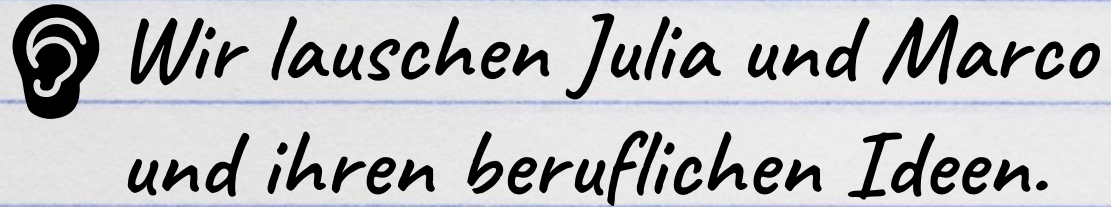 Wir lauschen Julia und Marco
und ihren beruflichen Ideen.